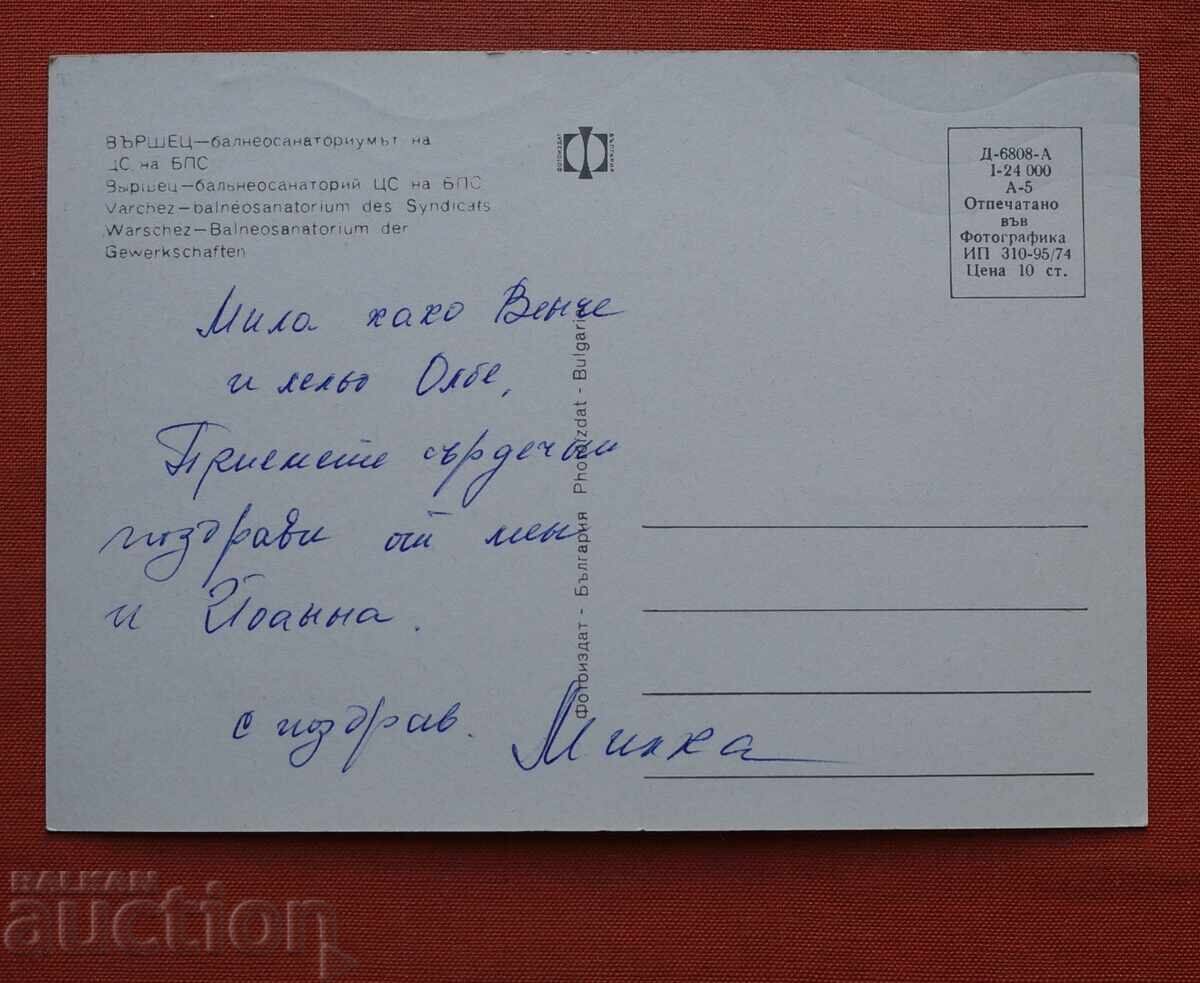 ВЪРШЕЦ—балнеосанаториумът на
ЦС на БПС
Вършец—бальнеосанаторий ЦС на БПС
Varchez—balnéosanatorium des Syndicats
Warschez—Balneosanatorium der
Gewerkschaften
ФОТОИЗДАТ
БЪЛГАРИЯ
Д-6808-А
I-24 000
А-5
Отпечатано
във
Фотографика
ИП 310-95/74
Цена 10 ст.
Мила како Венче
и лельо
Приемете сърдечни
поздрави от мен
и Йоанна.
с поздрав. Минка
Фотоиздат - България Photoizdat - Bulgaria
BALKAN
auction